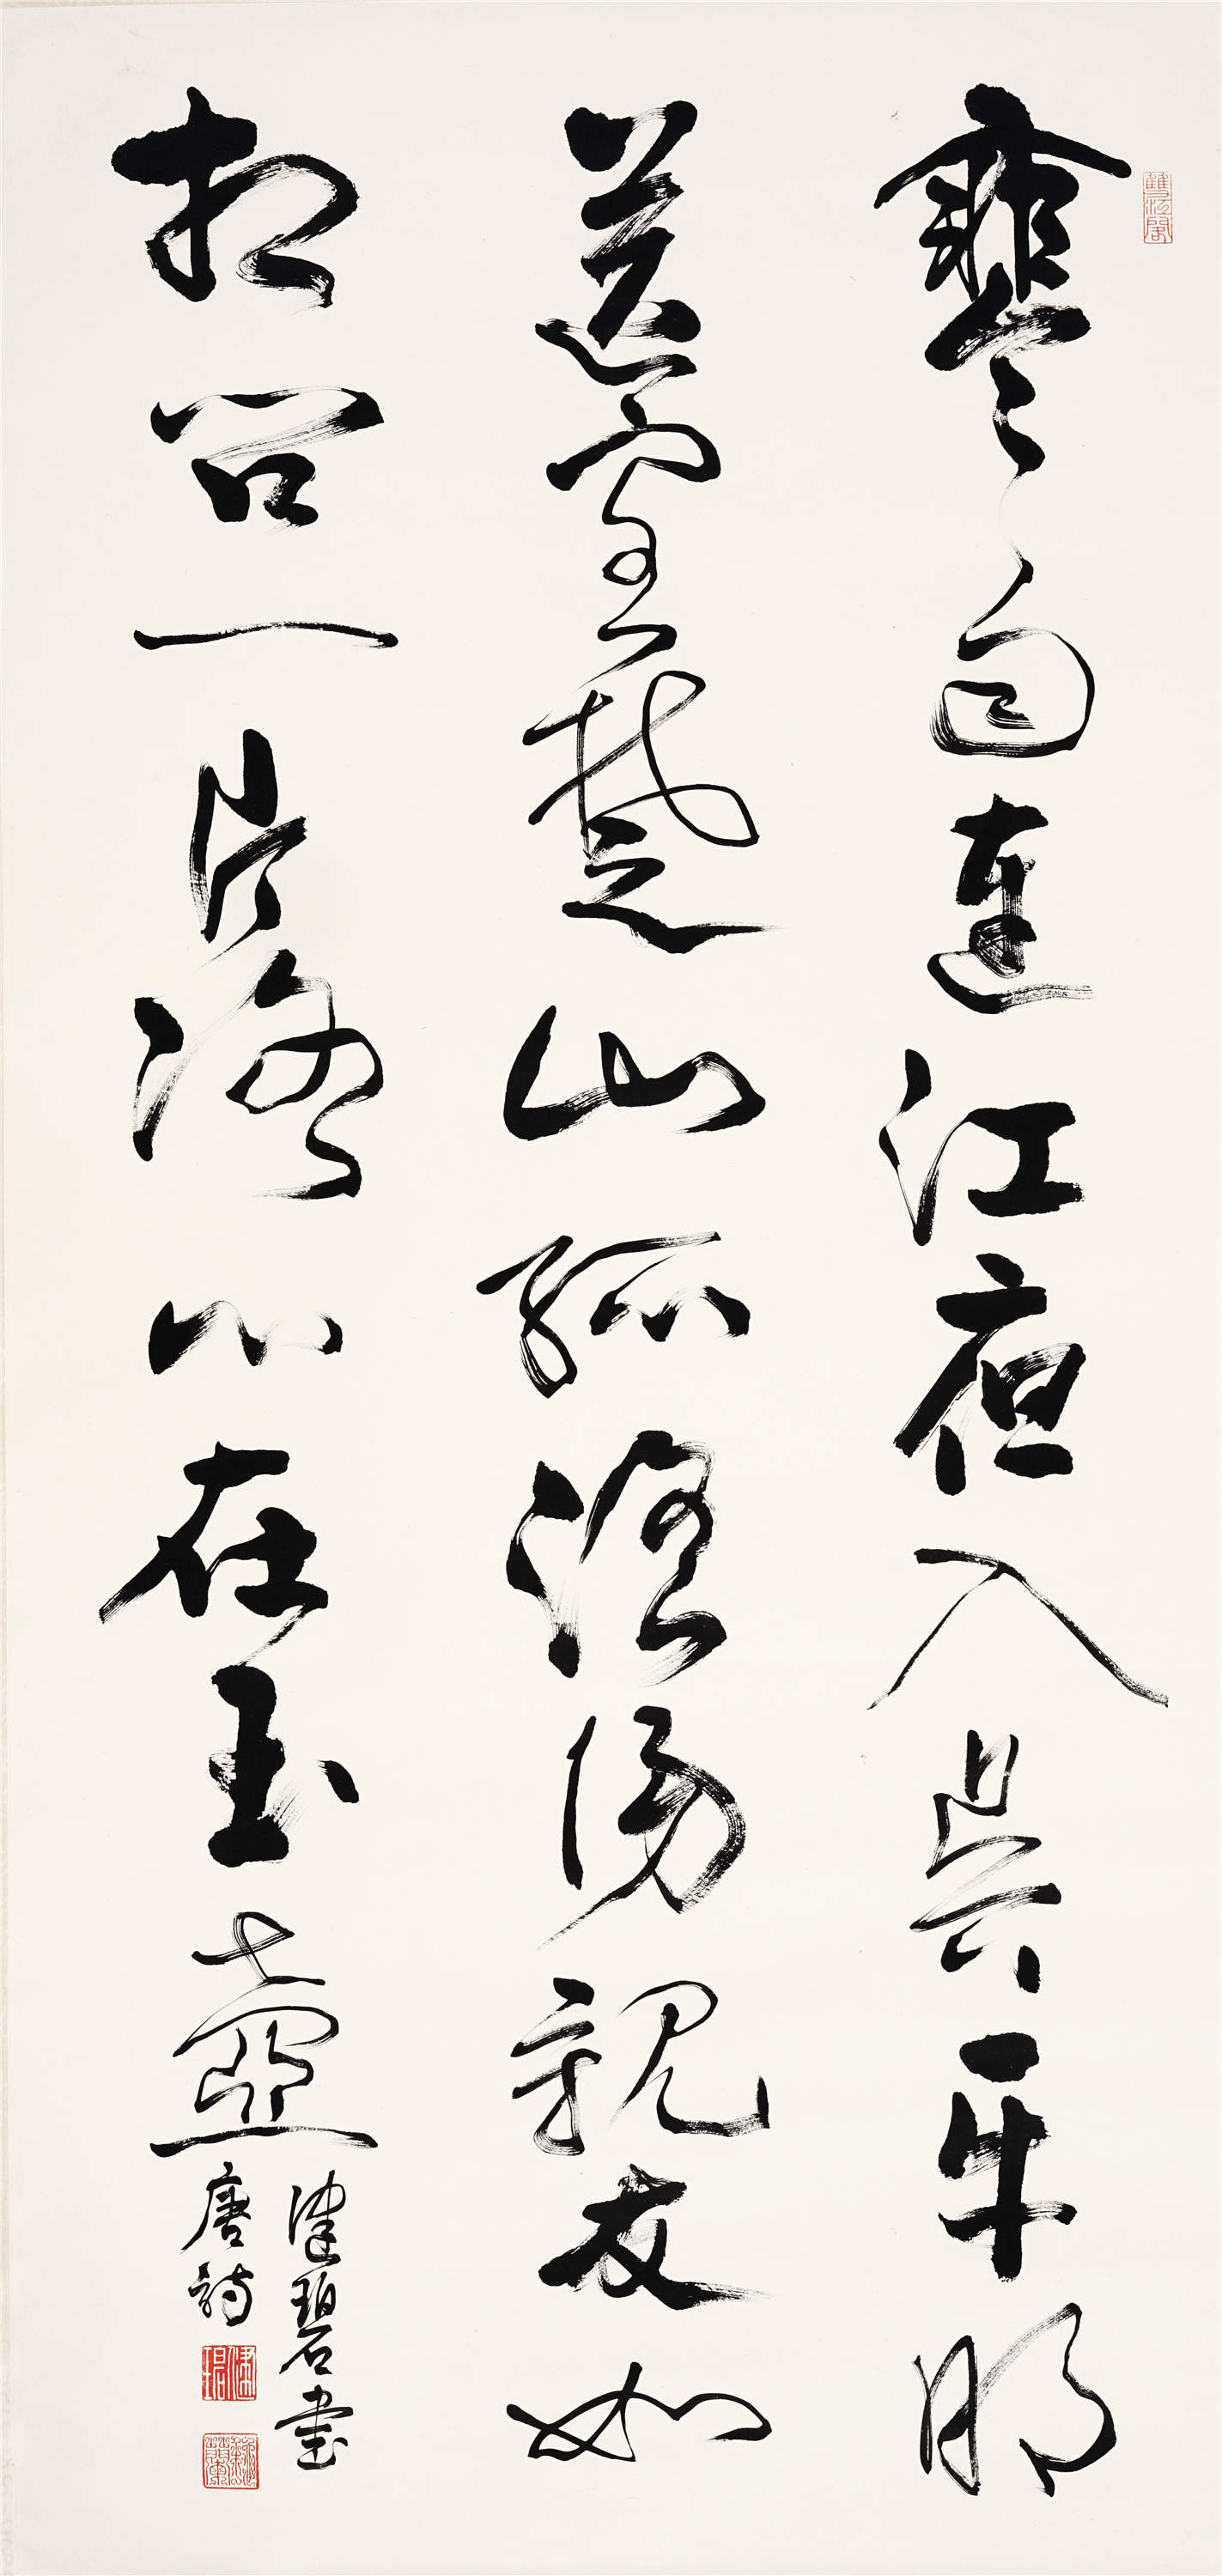 寒雨連江夜入吳平明
送客楚山孤洛陽親友如
相問一片冰心在玉壺
健碧書
唐詩